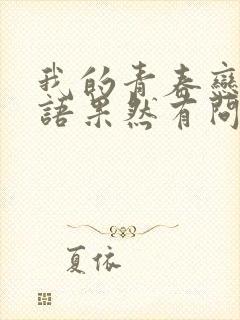 我的青春戀
語果然有問
夏依